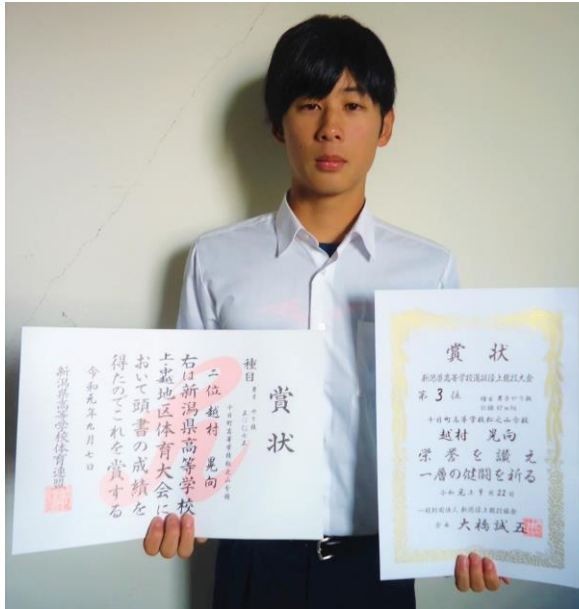 賞状
種目
男子 やり投
二位 越村 晃向
右は新潟県高等学校
上・中越地区体育大会に
おいて頭書の成績を
得たのでこれを賞する
令和元年九月七日
新潟県高等学校体育連盟
賞状
新潟県高等学校選抜陸上競技大会
第3位
種目 男子やり投
十日町高等学校松之山分校
越村 晃向
栄誉を讃え
一層の健闘を祈る
一般財団法人 新潟陸上競技協会
会長 大橋誠五